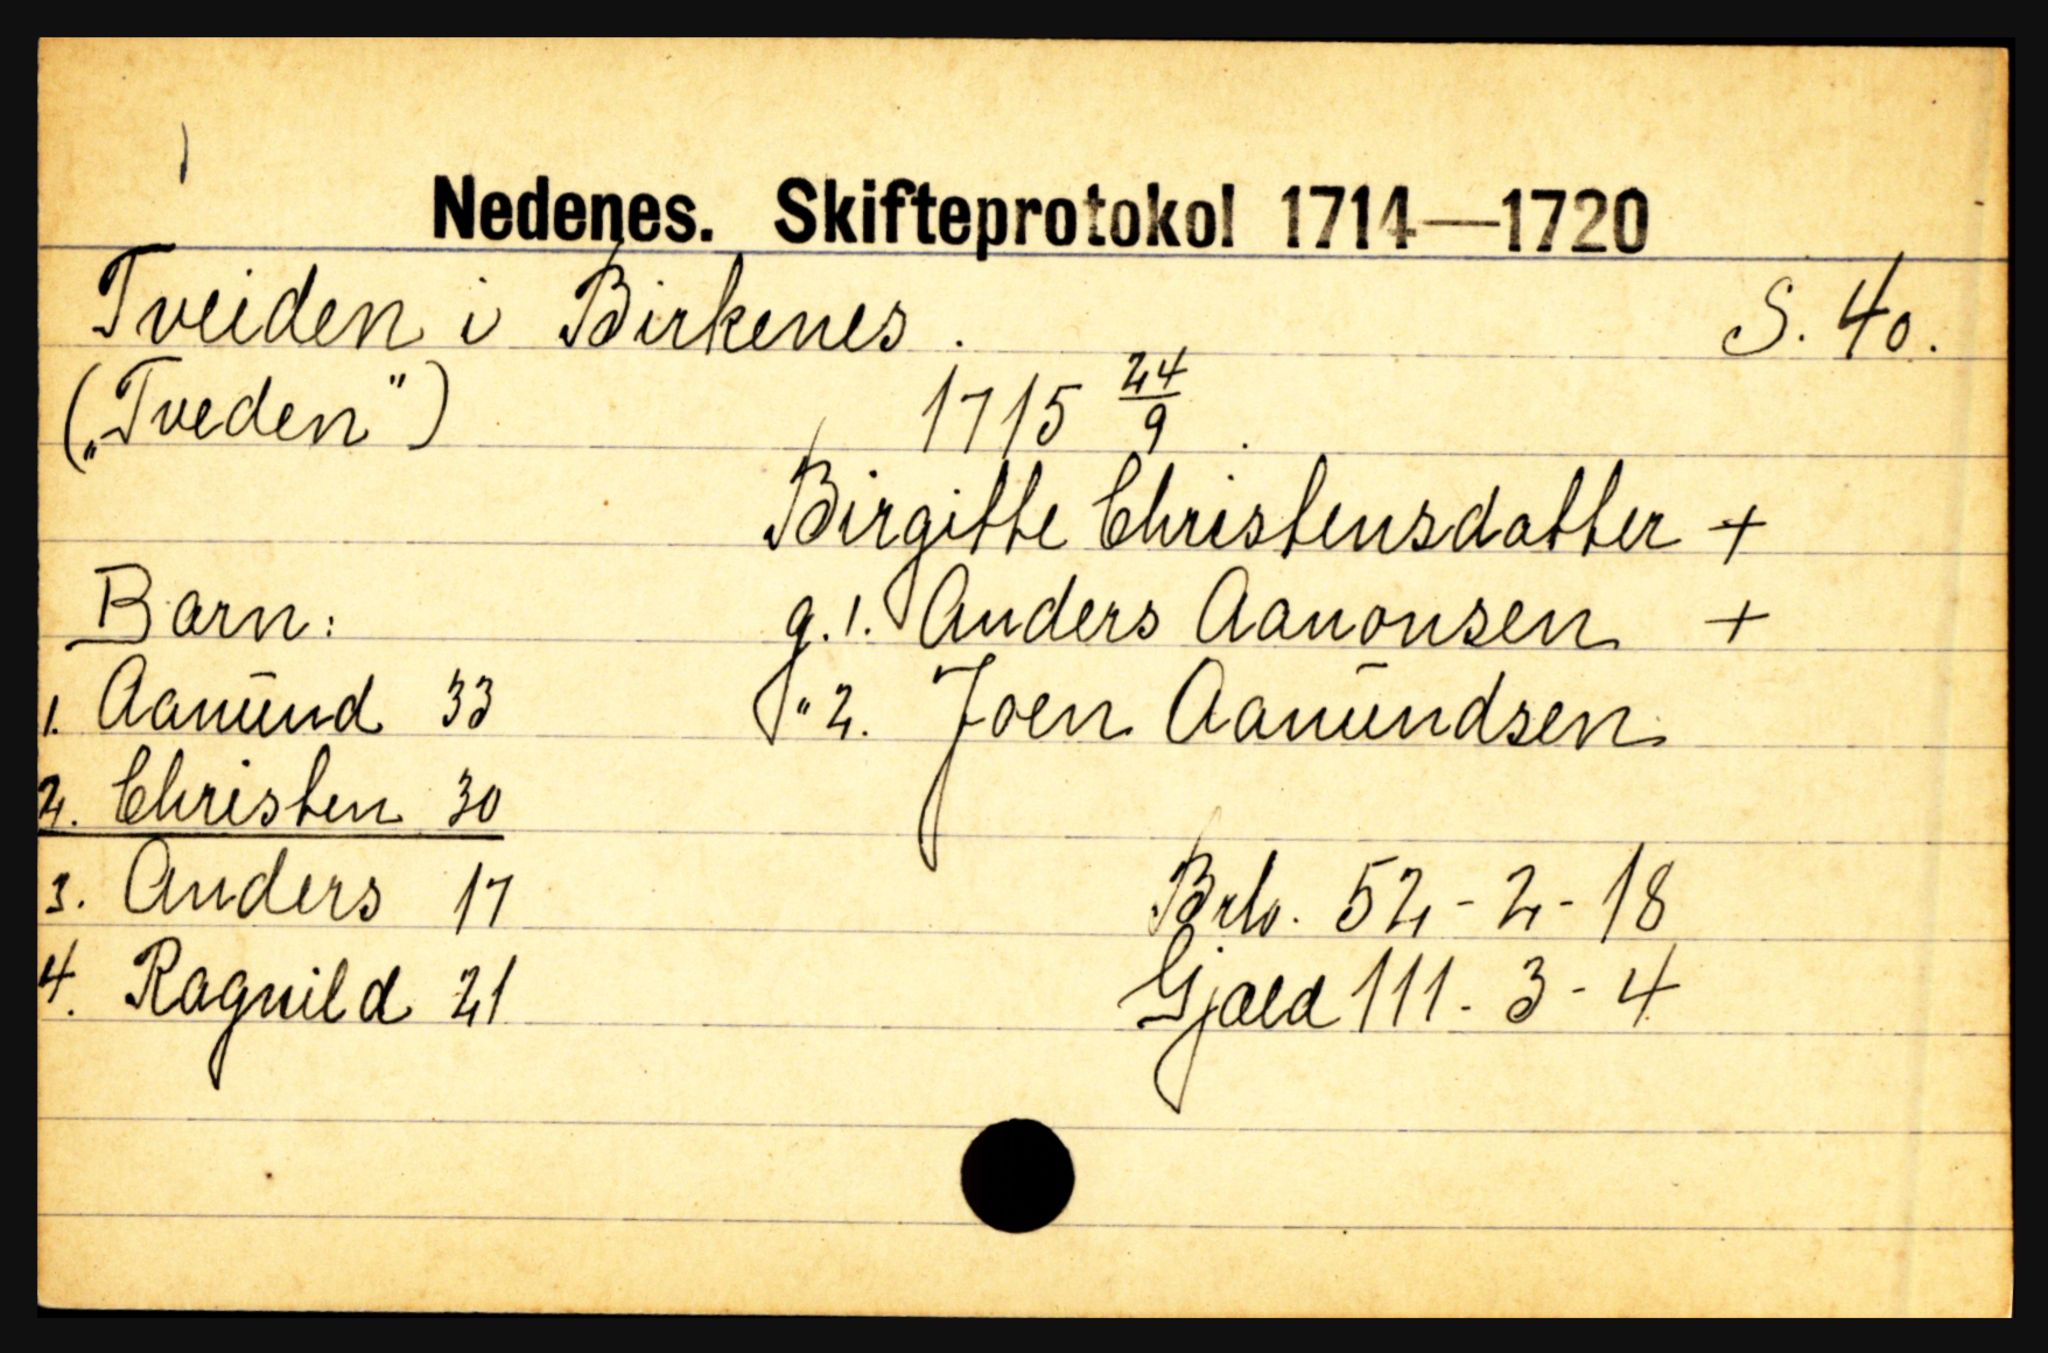 Nedenes. Skifteprotokol 1714—1720
Tveiden i Birkenes. S. 40.
("Tveden") 1715 24/9.
Birgitte Christensdatter +
Barn: g. 1. Anders Aanonsen +
1. Aanund 33 " 2. Joen Aanundsen
2. Christen 30
3. Anders 17 Brto. 52-2-18
4. Ragnild 21 Gjæld 111-3-4